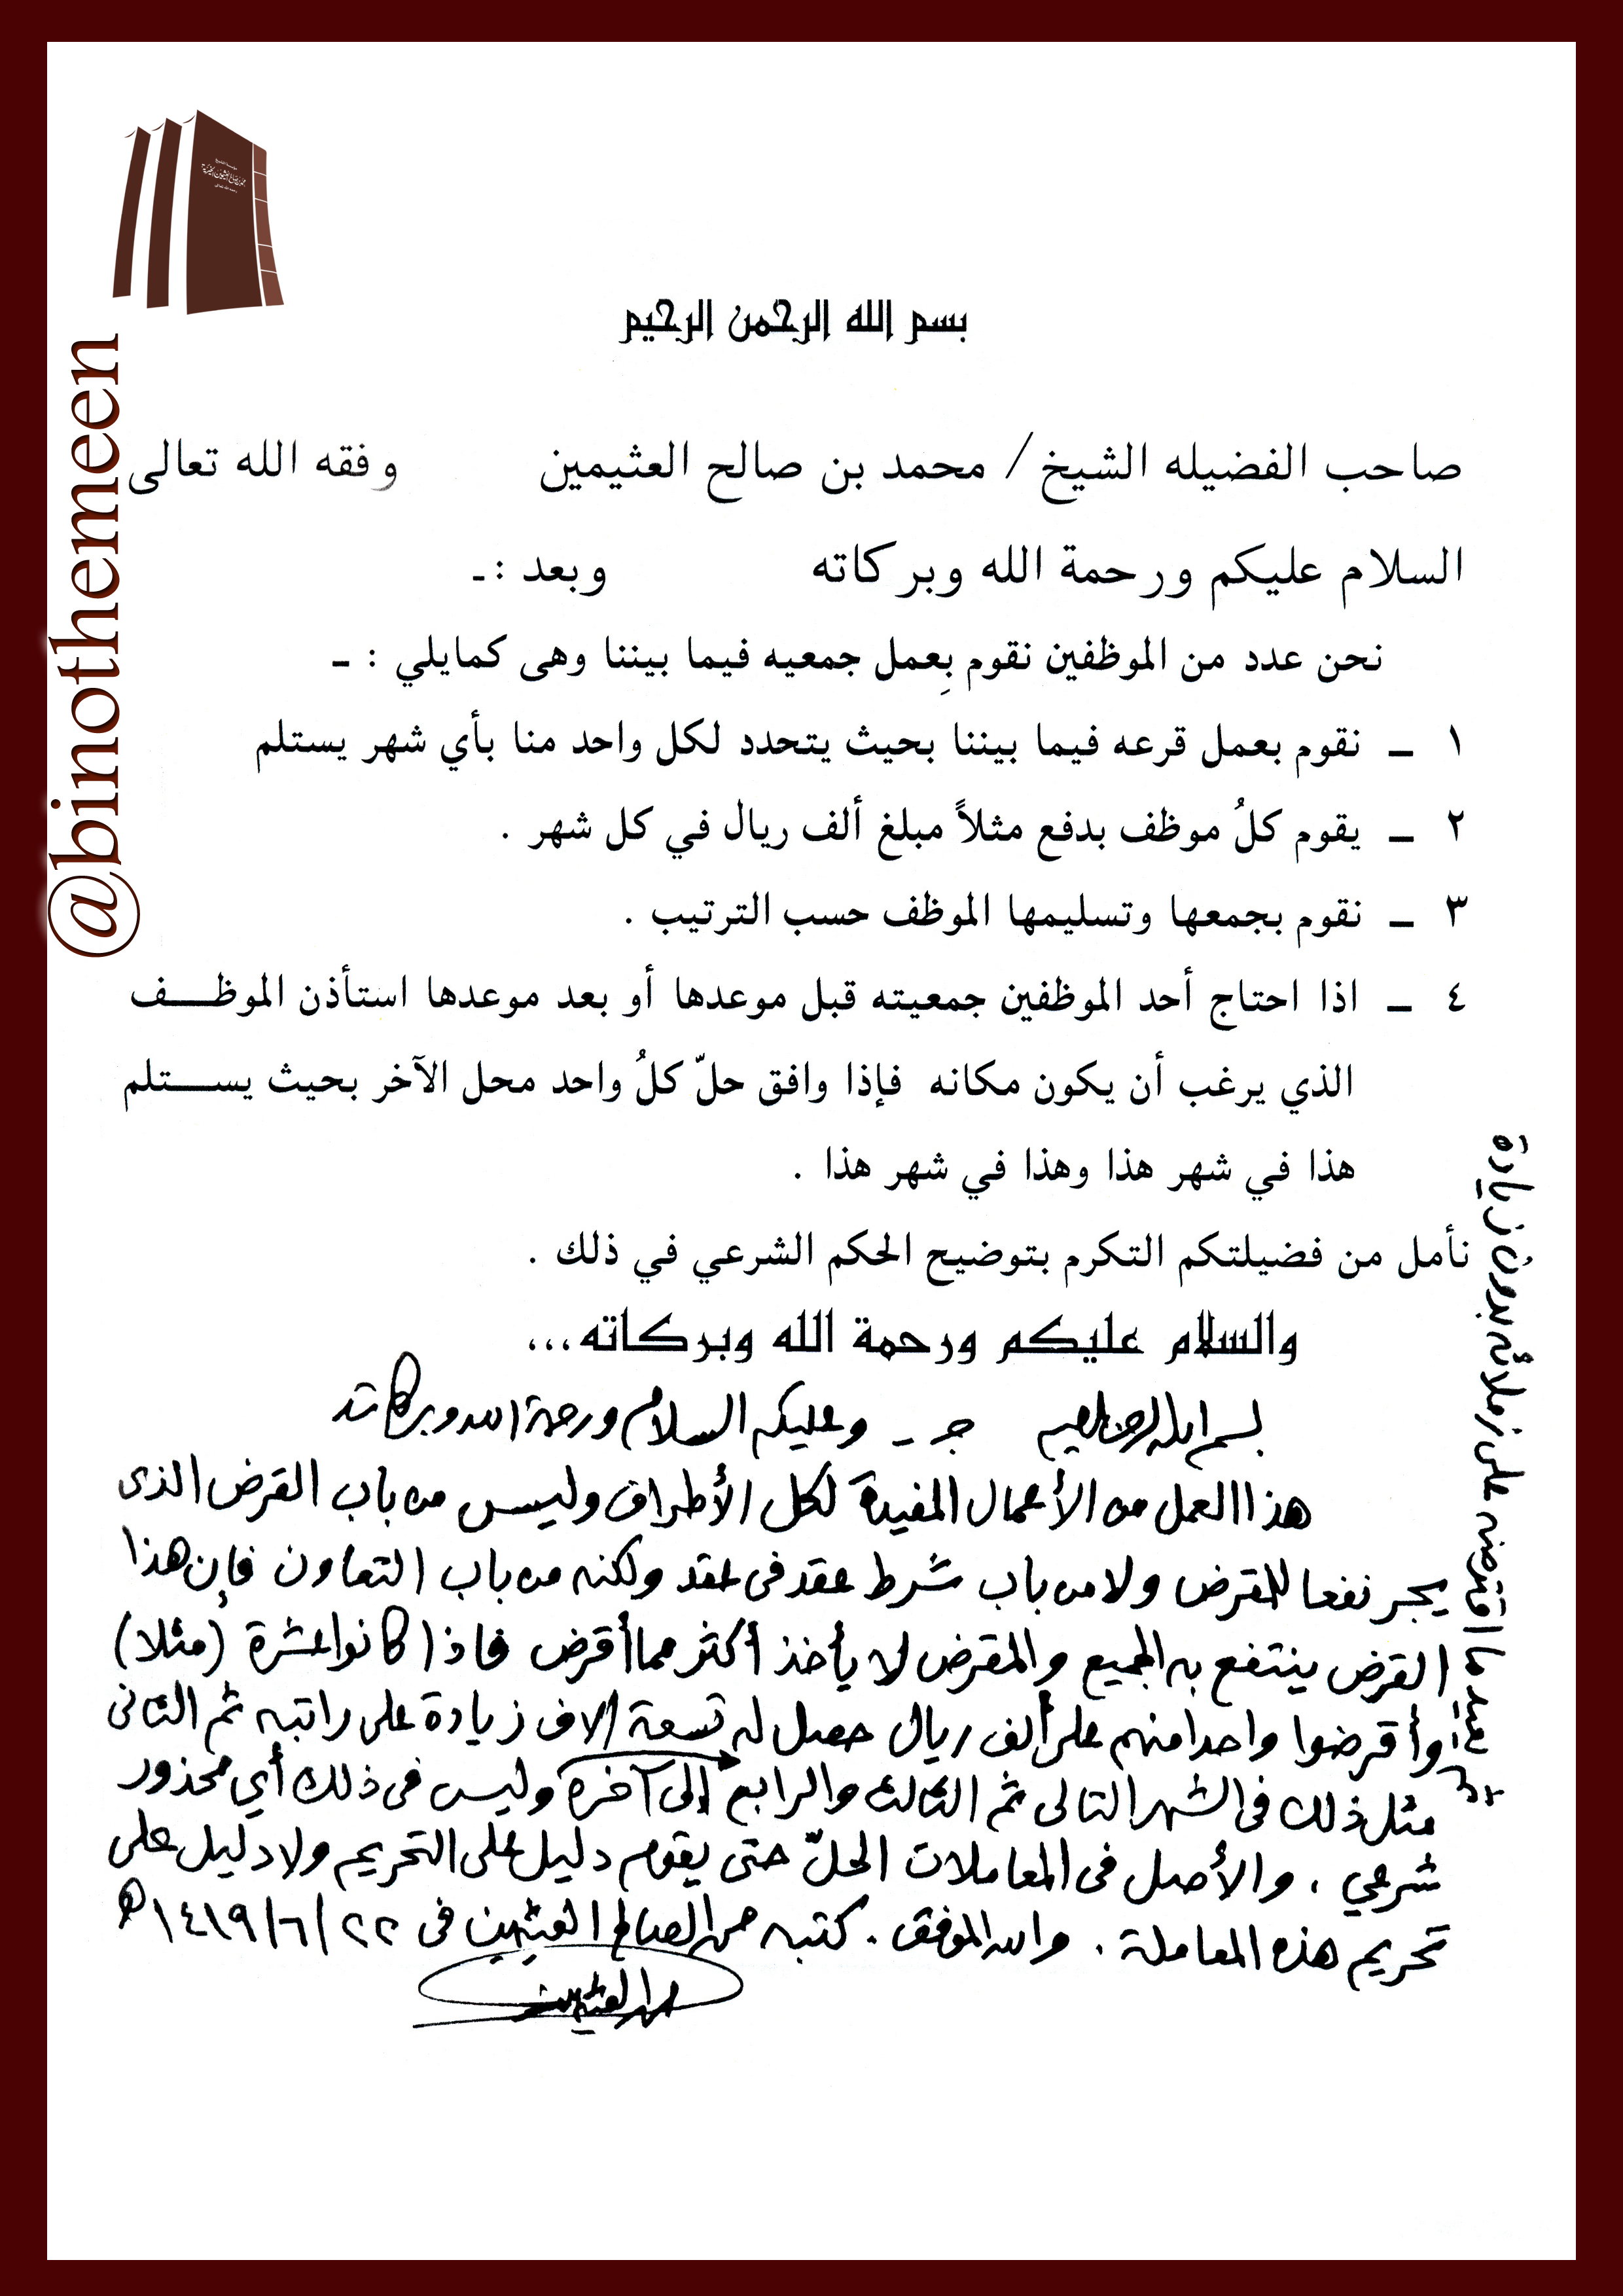 @binothemeen
بسم الله الرحمن الرحيم
صاحب الفضيله الشيخ / محمد بن صالح العثيمين وفقه الله تعالى
السلام عليكم ورحمة الله وبركاته وبعد :ـ
نحن عدد من الموظفين نقوم بِعمل جمعيه فيما بيننا وهى كمايلي : ـ
١ ـ نقوم بعمل قرعه فيما بيننا بحيث يتحدد لكل واحد منا بأي شهر يستلم
٢ ـ يقوم كلُ موظف بدفع مثلاً مبلغ ألف ريال في كل شهر .
٣ ـ نقوم بجمعها وتسليمها الموظف حسب الترتيب .
٤ ـ اذا احتاج أحد الموظفين جمعيته قبل موعدها أو بعد موعدها استأذن الموظــف
الذي يرغب أن يكون مكانه فإذا وافق حلّ كلُ واحد محل الآخر بحيث يســتلم
هذا في شهر هذا وهذا في شهر هذا .
نأمل من فضيلتكم التكرم بتوضيح الحكم الشرعي في ذلك .
والسلام عليكم ورحمة الله وبركاته...
بسم الله الرحمن الرحيم جـ ـ وعليكم السلام ورحمة الله وبركاته
هذا العمل من الأعمال المفيدة لكل الأطراف وليس من باب القرض الذى
يجر نفعا للمقرض ولا من باب شرط عقد فى عقد ولكنه من باب التعاون فإن هذا
القرض ينتفع به الجميع والمقرض لا يأخذ أكثر مما أقرض فاذا كانوا عشرة (مثلا)
وأقرضوا واحدا منهم على ألف ريال حصل له تسعة الاف زيادة على راتبه ثم الثانى
مثل ذلك فى الشهر التالى ثم الثالث والرابع إلى آخره وليس فى ذلك أي محذور
شرعي . والأصل فى المعاملات الحلّ حتى يقوم دليل على التحريم ولا دليل على
تحريم هذه المعاملة . والله الموفق . كتبه محمد الصالح العثيمين فى ٢٢/٦/١٤١٩هـ
محمد العثيمين
ثم يعيد ما اقترضه على زملائه بدون زيادة